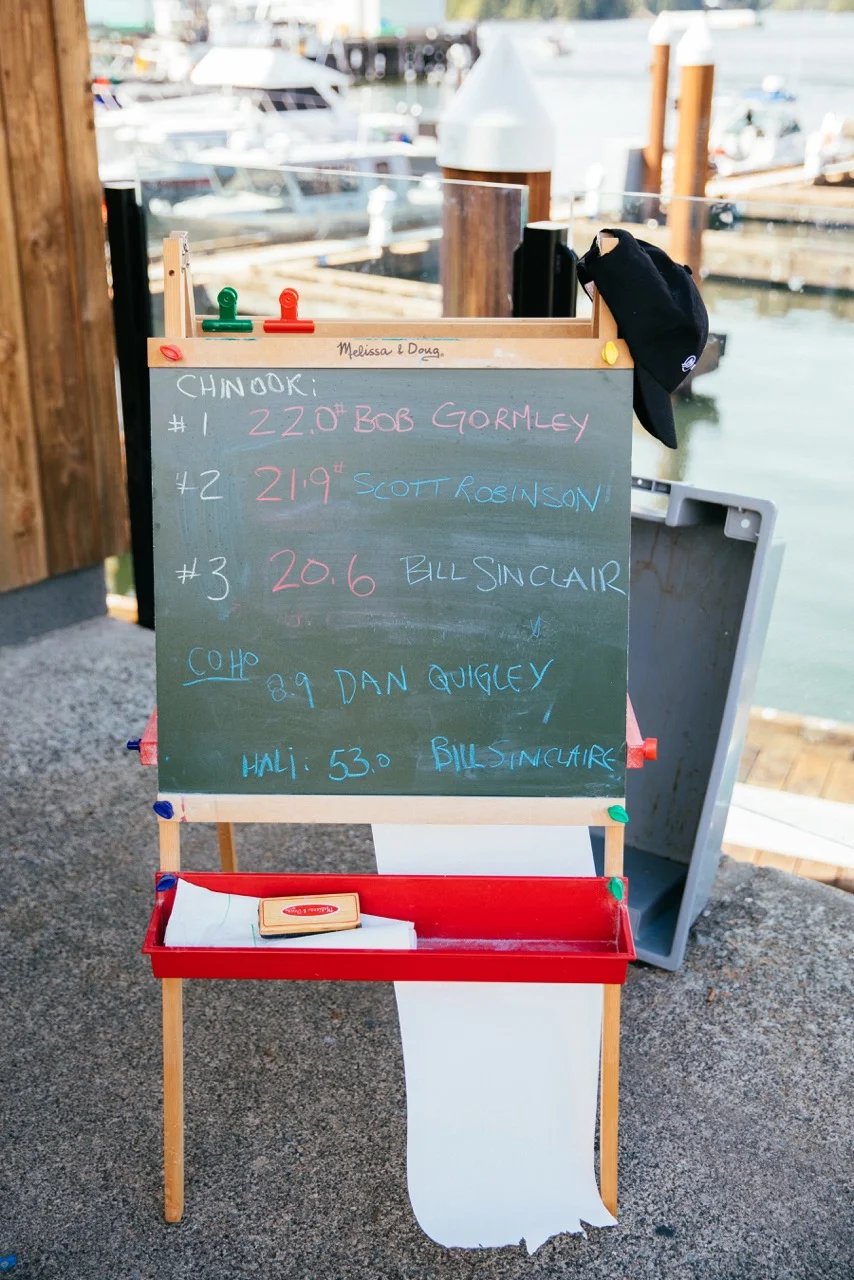 Melissa & Doug
CHINOOK:
#1 22.0# BOB GORMLEY
#2 21.9# SCOTT ROBINSON
#3 20.6 BILL SINCLAIR
COHO
8.9 DAN QUIGLEY
HALI: 53.0 BILL SINCLAIRE
Melissa & Doug